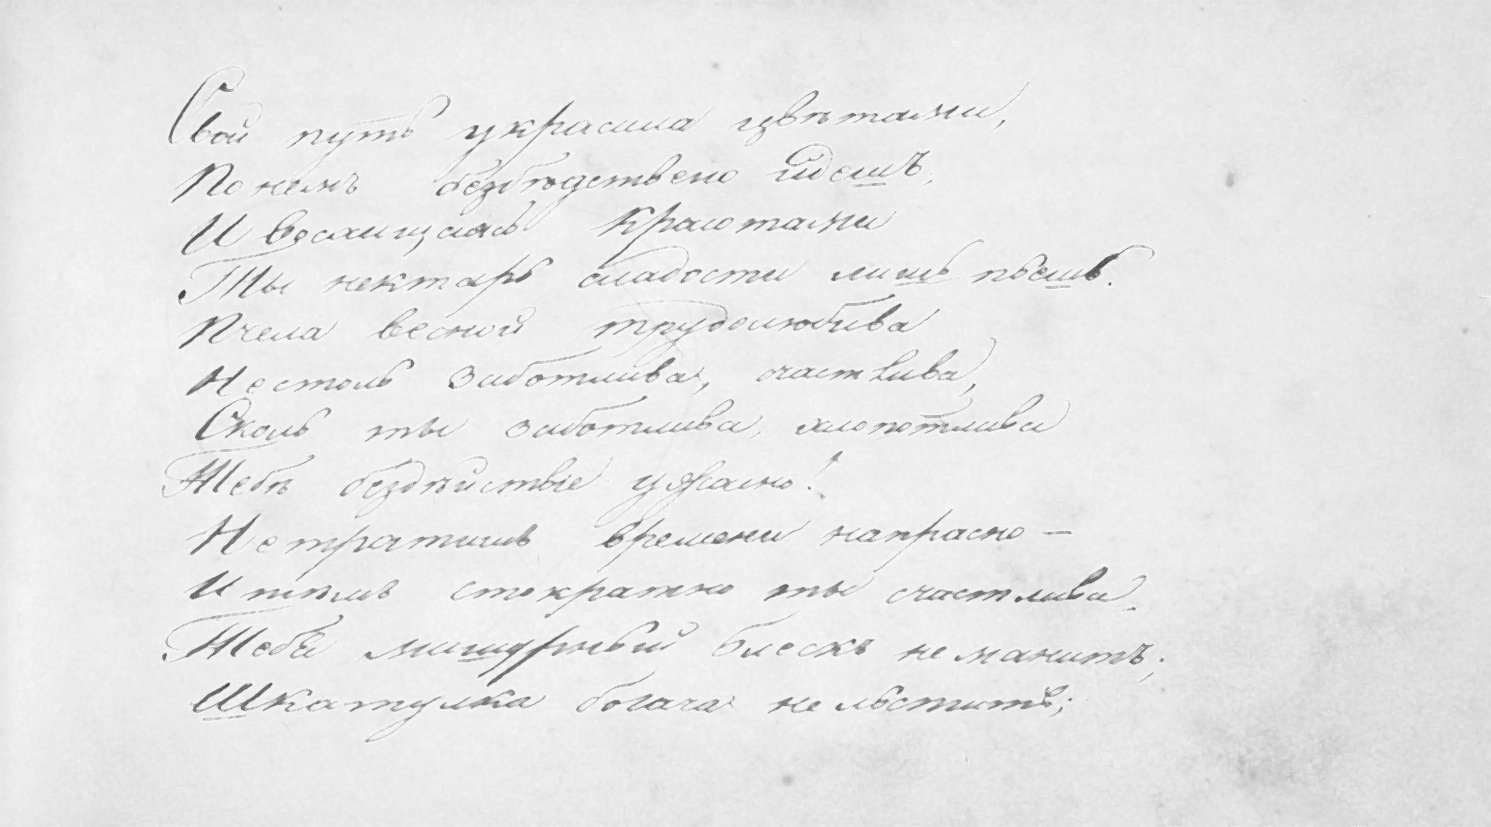 Свой путь украсила цвѣтами,
По немъ безбѣдствено идешъ,
И восхищаясь красотами
Ты нектаръ сладости лишь пьешь.
Пчела весной трудолюбива
Не столь заботлива, счастлива,
Сколь ты заботлива, хлопотлива
Тебѣ бездѣйствіе ужасно!
Не тратишь времени напрасно —
И тѣмъ стократно ты счастлива.
Тебя мишурный блескъ не манитъ;
Шкатулка богача не льститъ;